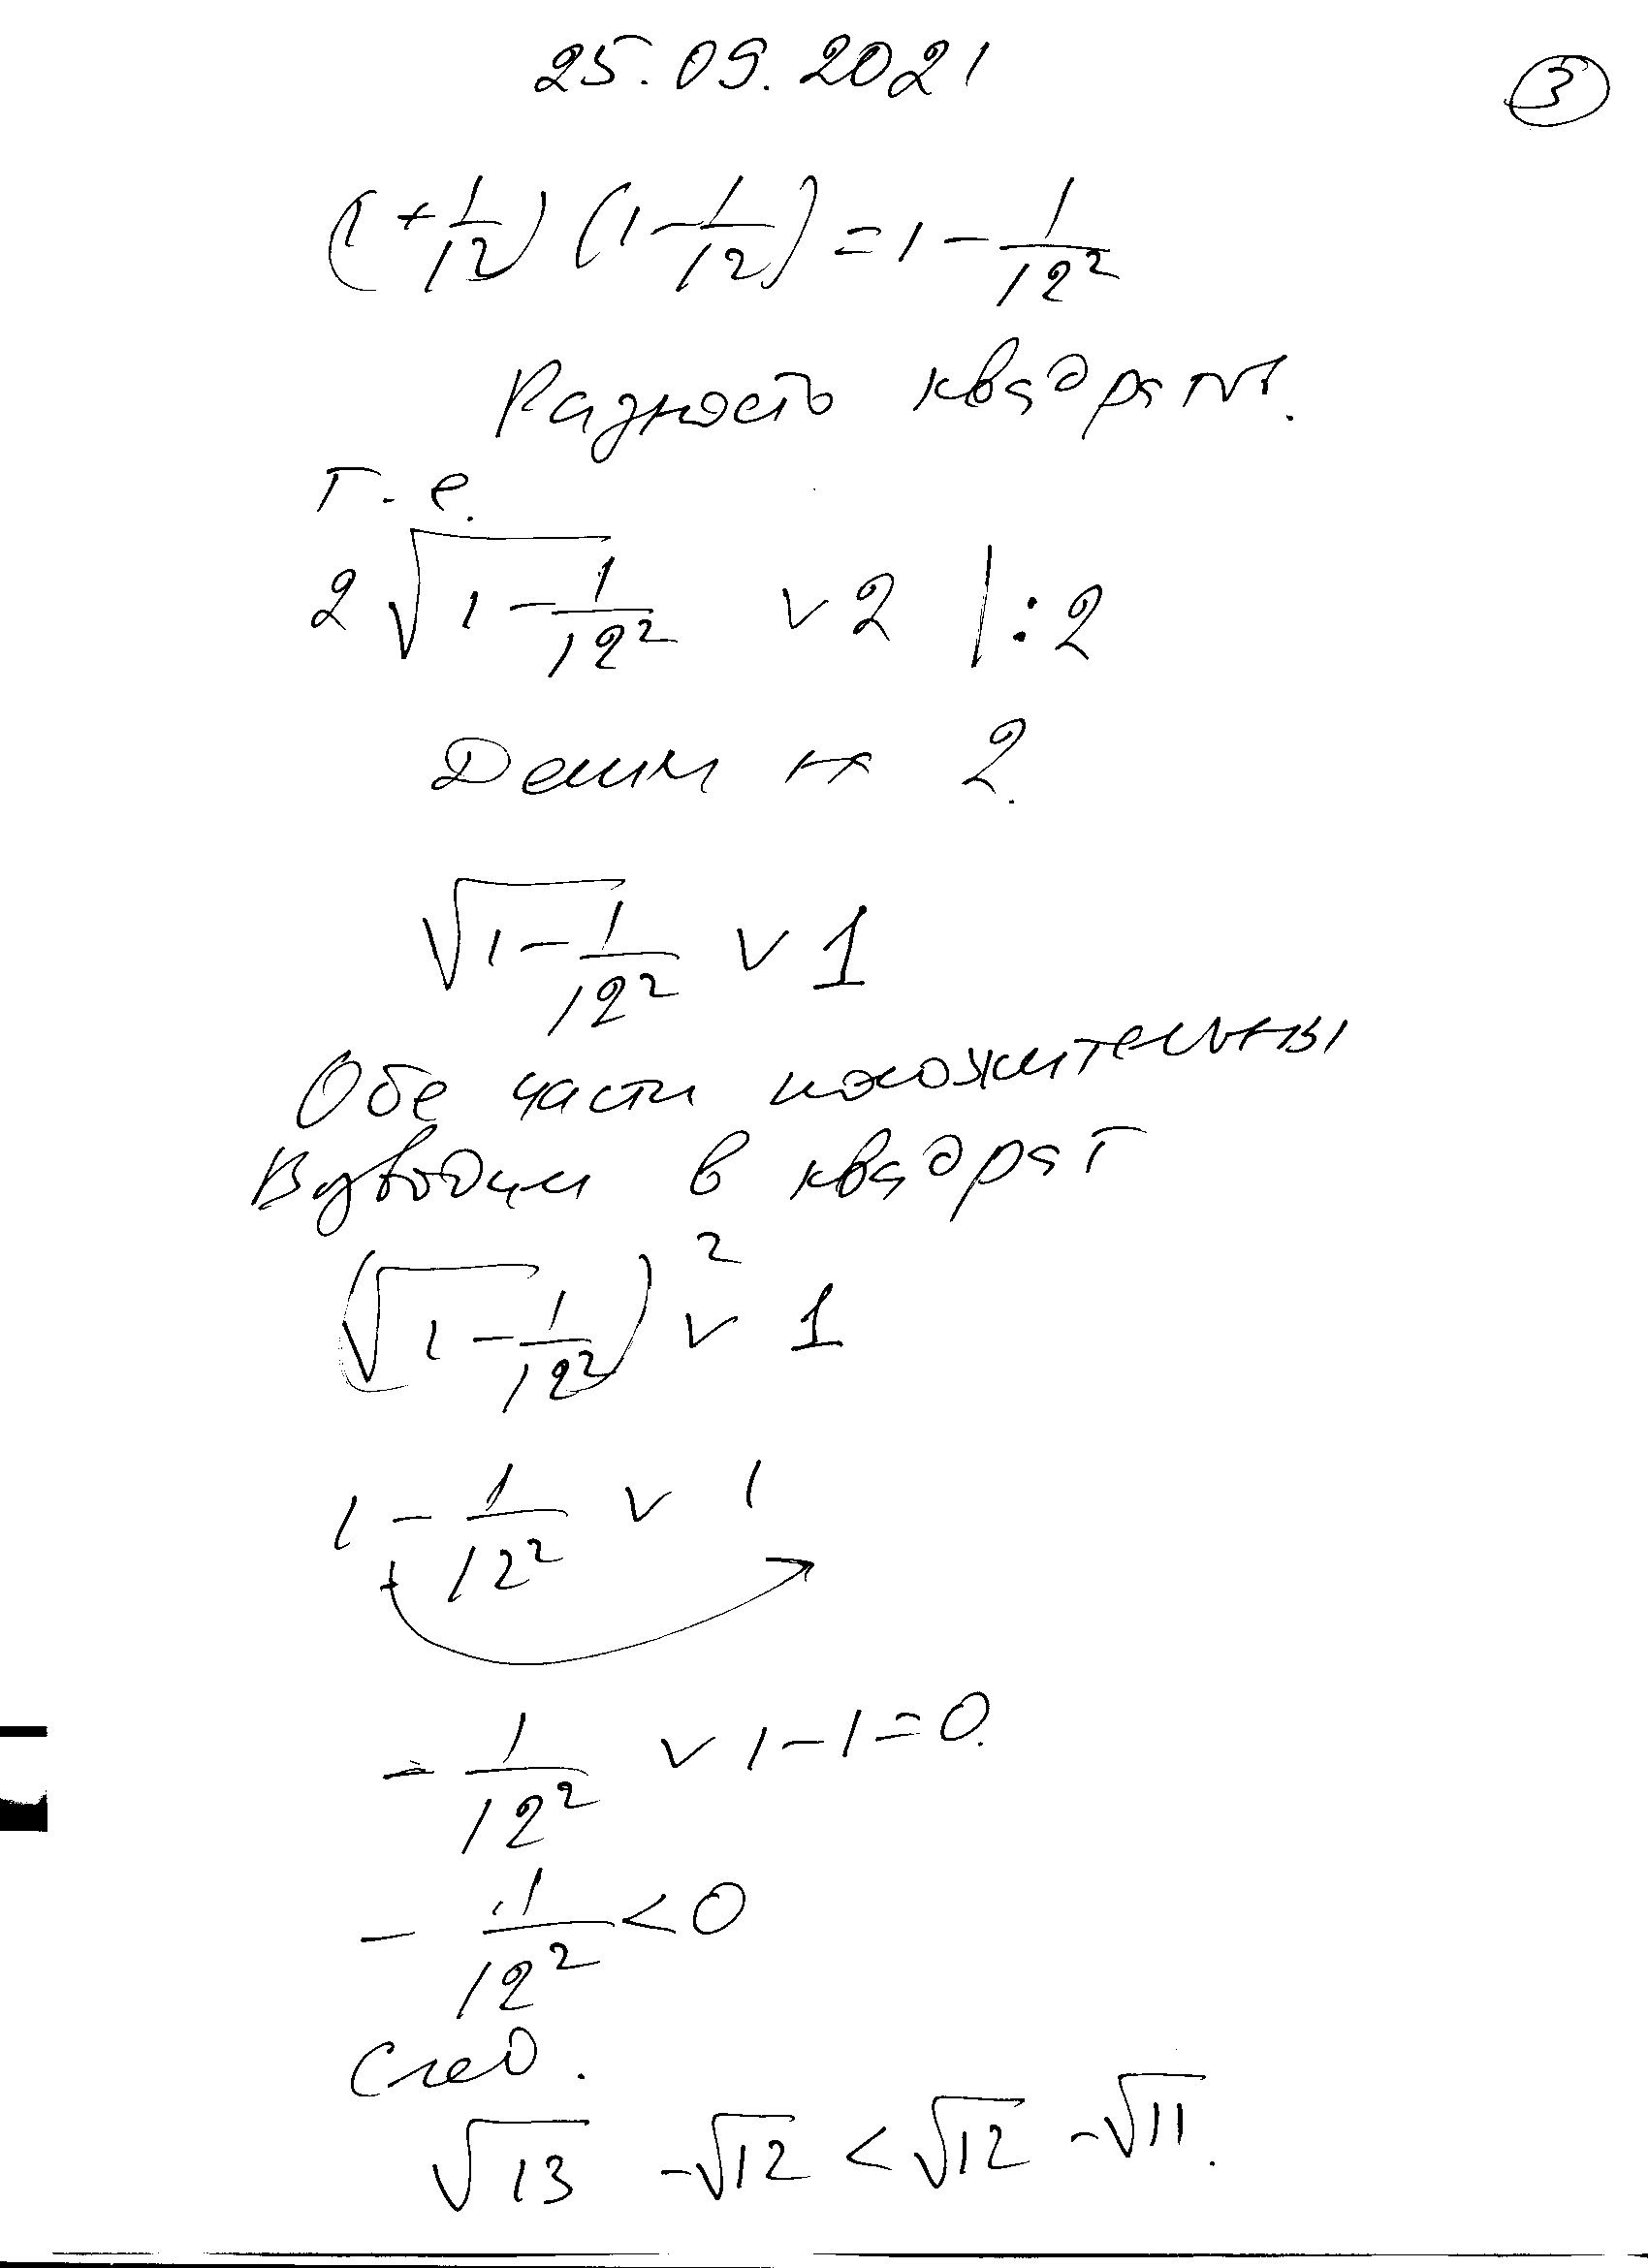 25.09.2021
3
(1 + 1/12) (1 - 1/12) = 1 - 1/12²
Разность квадратов.
т.е.
2√(1 - 1/12²) ∨ 2 | : 2
Делим на 2.
√(1 - 1/12²) ∨ 1
Обе части положительны
Возводим в квадрат
(√(1 - 1/12²))² ∨ 1
1 - 1/12² ∨ 1
- 1/12² ∨ 1 - 1 = 0.
- 1/12² < 0
След.
√13 - √12 < √12 - √11.